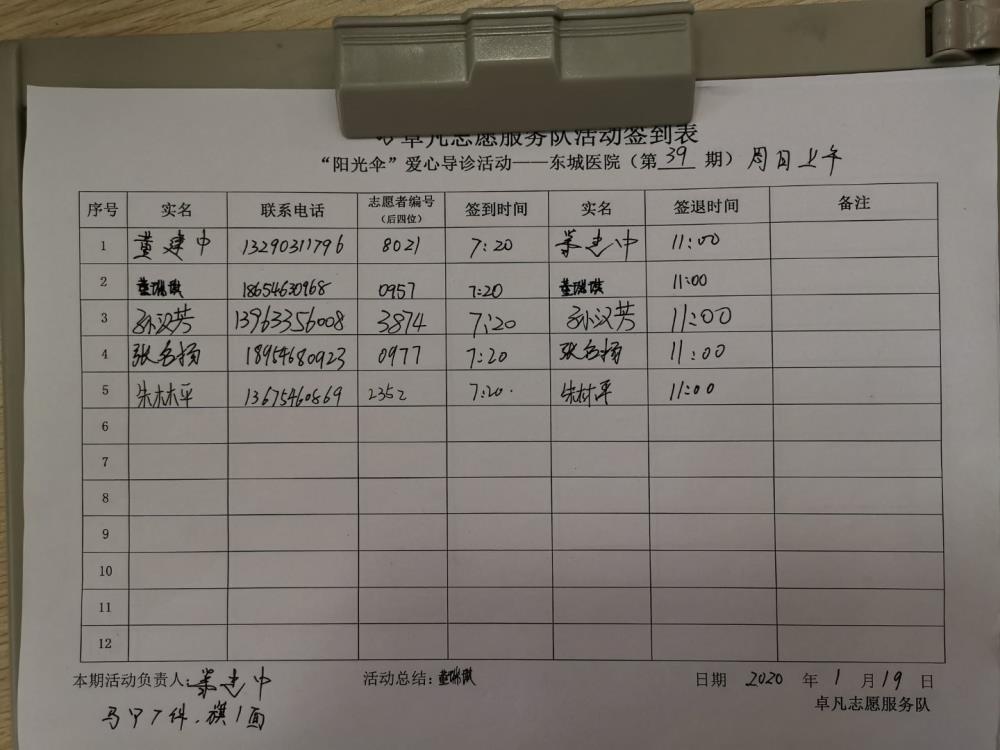 卓凡志愿服务队活动签到表
“阳光伞”爱心导诊活动——东城医院（第 39 期）周日上午
序号 实名 联系电话 志愿者编号（后四位） 签到时间 实名 签退时间 备注
1 董建中 13290311796 8021 7:20 董建中 11:00
2 董琳琪 18654630968 0957 7:20 董琳琪 11:00
3 孙汉芳 13963356008 3874 7:20 孙汉芳 11:00
4 张名扬 18954680923 0977 7:20 张名扬 11:00
5 朱林平 13675460869 2352 7:20. 朱林平 11:00
6
7
8
9
10
11
12
本期活动负责人:董建中 活动总结:董琳琪 日期 2020 年 1 月 19 日
马甲7件.旗1面 卓凡志愿服务队